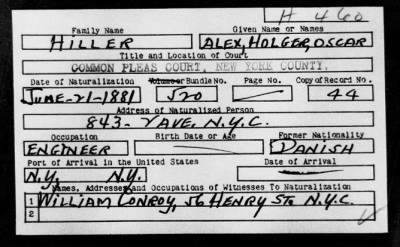 H 460
Family Name Given Name or Names
HILLER ALEX, HOLGER, OSCAR
Title and Location of Court
COMMON PLEAS COURT, NEW YORK COUNTY.
Date of Naturalization Volume or Bundle No. Page No. Copy of Record No.
JUNE-21-1881 520 44
Address of Naturalized Person
843- 7 AVE. N.Y.C.
Occupation Birth Date or Age Former Nationality
ENGINEER DANISH
Port of Arrival in the United States Date of Arrival
N.Y. N.Y.
Names, Addresses and Occupations of Witnesses To Naturalization
1 WILLIAM CONROY, 56 HENRY ST. N.Y.C.
2